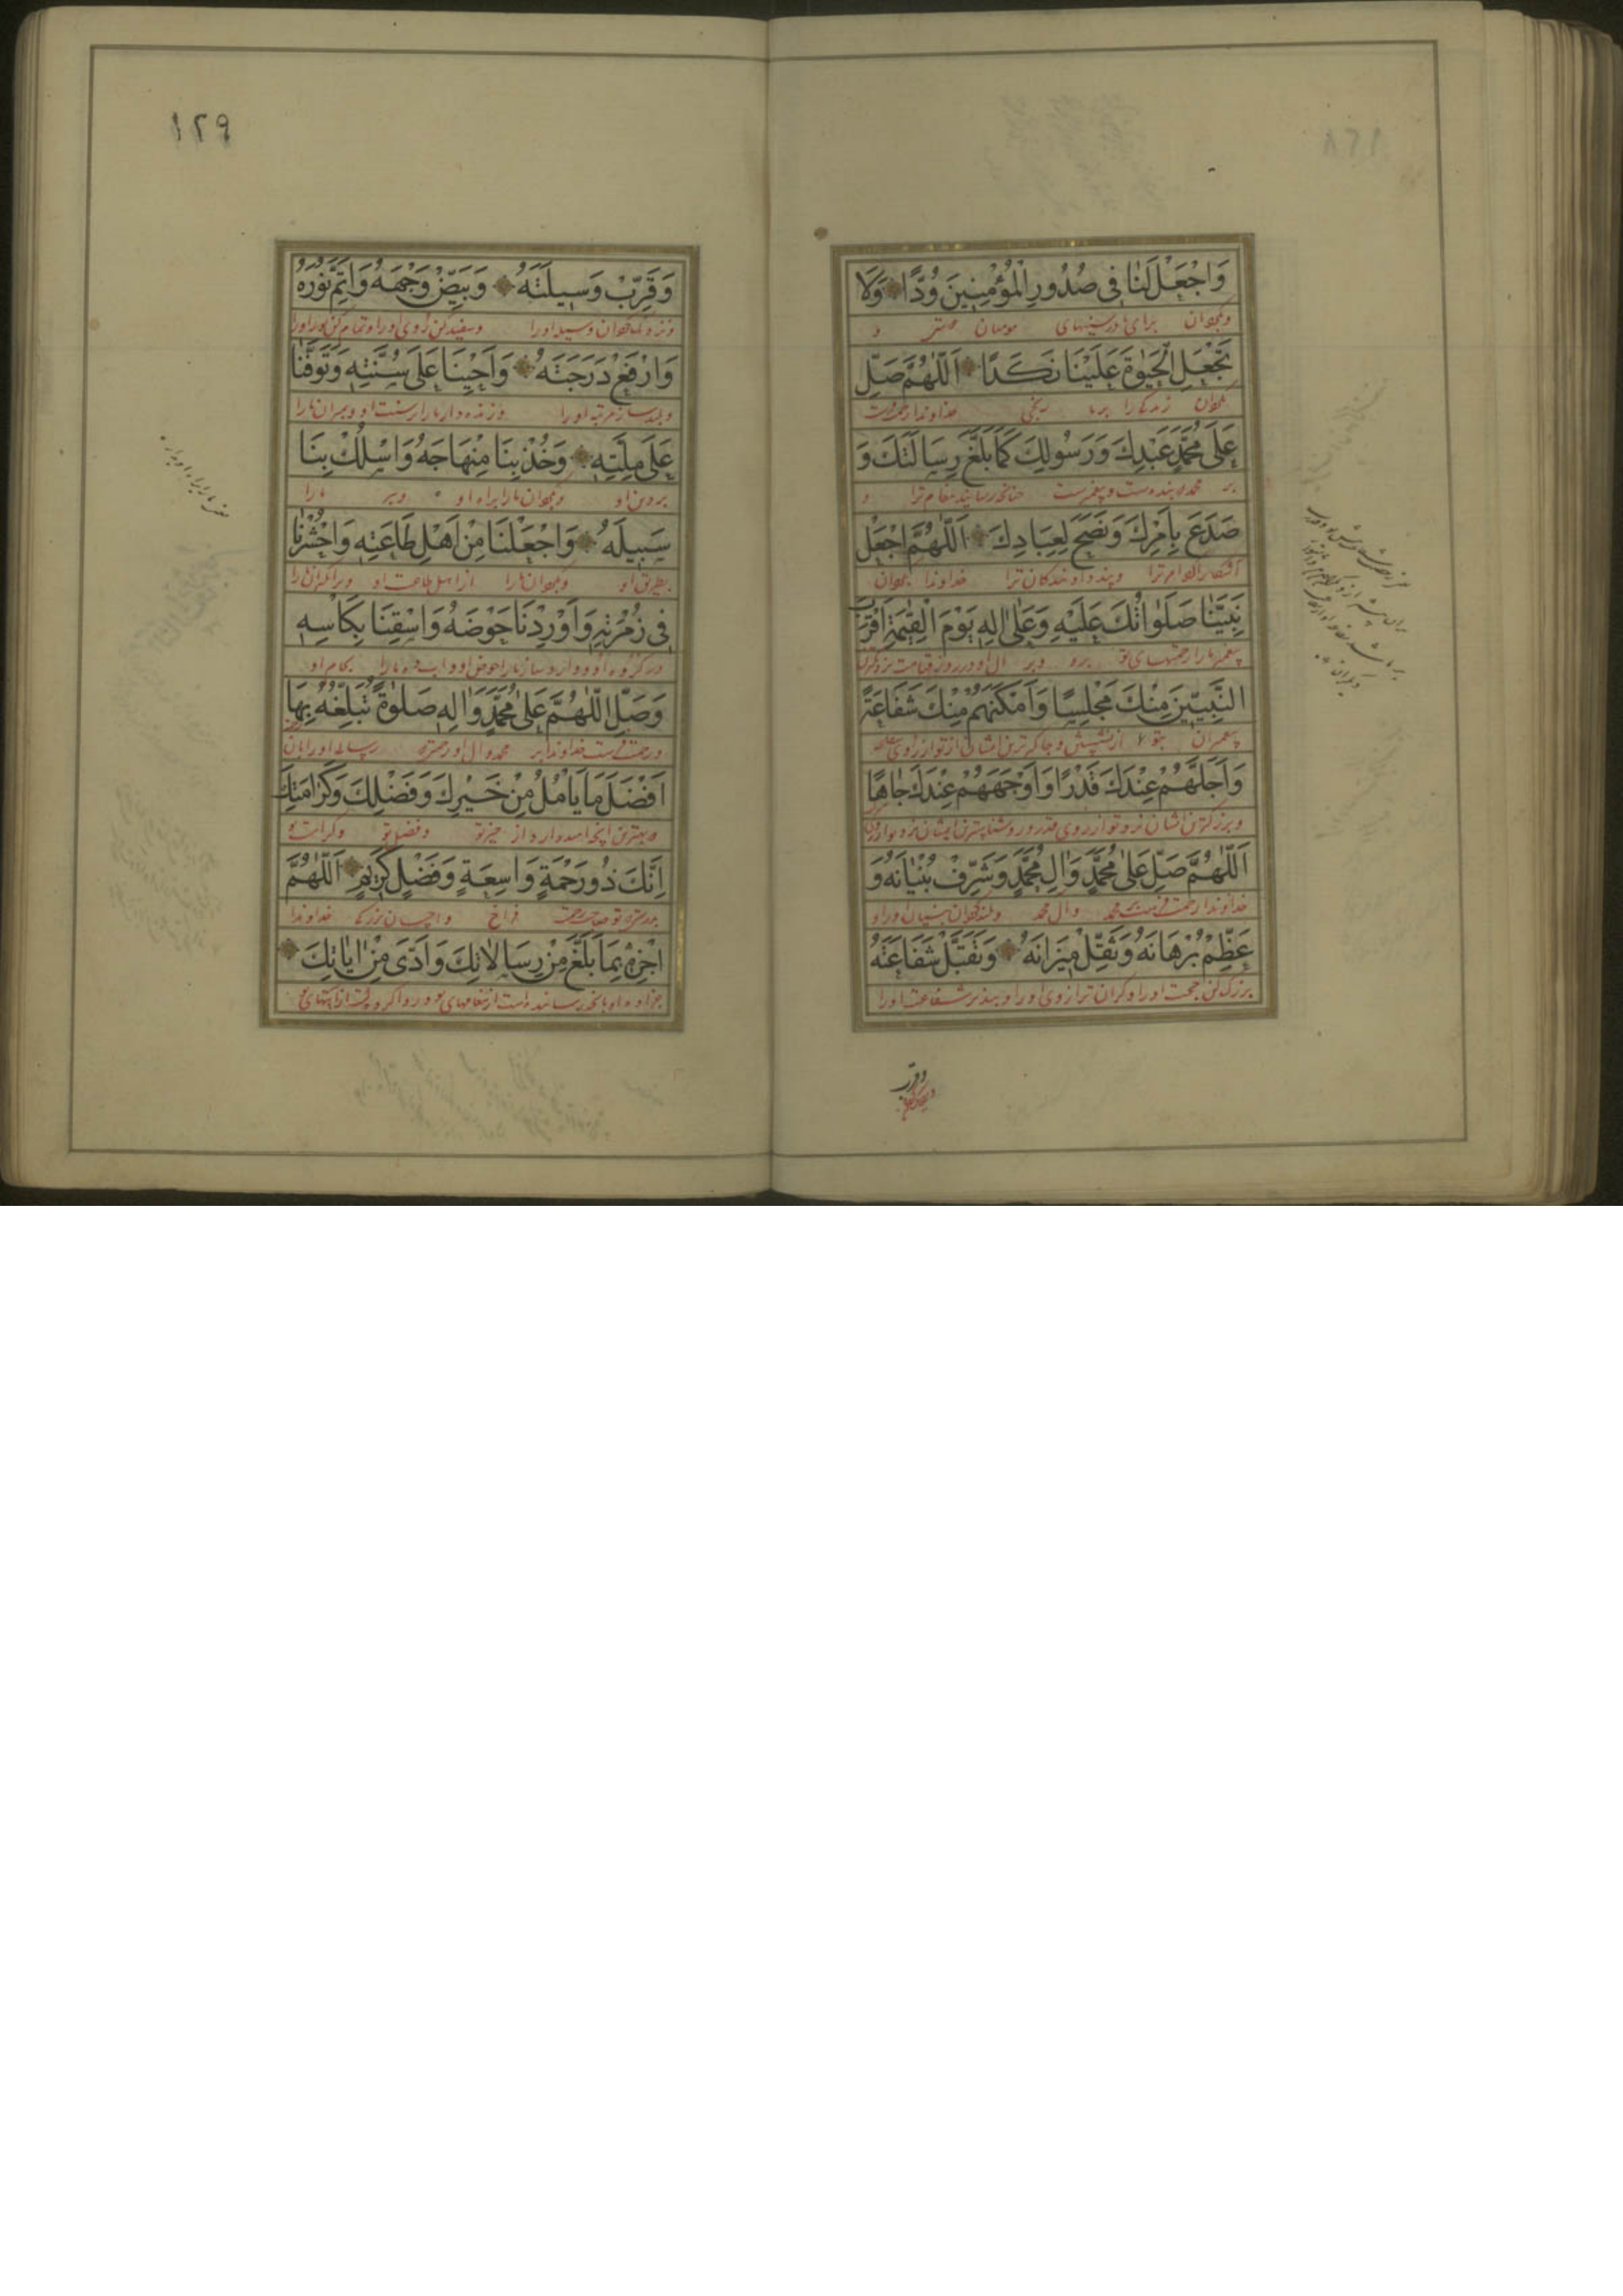 وَاجْعَلْ لَنٰا فِی صُدُورِ الْمُؤْمِنِینَ وُدًّا وَلَا
وبگردان برای ما در سینهای مومنان و
تَجْعَلِ الْحَیٰوةَ عَلَیْنَا نَکَدًا اَللّٰهُمَّ صَلِّ
مگردان زندگی را بر ما رنجی خداوندا رحمت فرست
عَلٰی مُحَمَّدٍ عَبْدِكَ وَرَسُولِكَ کَمٰا بَلَّغَ رِسٰالَتَكَ وَ
بر محمد بنده تست و پیغمبرت چنانچه رسانید پیغام ترا و
صَدَعَ بِاَمْرِكَ وَنَصَحَ لِعِبَادِكَ اَللّٰهُمَّ اجْعَلْ
آشکارا کرد امر ترا و پند داد بندگان ترا خداوندا بگردان
نَبِیَّنٰا صَلَوٰاتُكَ عَلَیْهِ وَعَلٰی اٰلِهِ یَوْمَ الْقِیٰمَةِ اَقْرَبَ
پیغمبر ما را رحمتهای تو برو و بر آل او در روز قیامت نزدیکترین
النَّبِیّٖینَ مِنْكَ مَجْلِسًا وَاَمْکَنَهُمْ مِنْكَ شَفَاعَةً
پیغمبران بتو از
وَاَجَلَّهُمْ عِنْدَكَ قَدْرًا وَاَوْجَهَهُمْ عِنْدَكَ جٰاهًا
و بزرگترین ایشان نزد تو از روی قدر و روشناسترین ایشان نزد تو از روی
اَللّٰهُمَّ صَلِّ عَلٰی مُحَمَّدٍ وَاٰلِ مُحَمَّدٍ وَشَرِّفْ بُنْیٰانَهُ وَ
خداوندا رحمت فرست بر محمد وآل محمد و بلند گردان بنیان او را و
عَظِّمْ بُرْهَانَهُ وَثَقِّلْ مٖیزَانَهُ وَتَقَبَّلْ شَفَاعَتَهُ
بزرگ کن حجت او را و گران کن ترازوی او را و بپذیر شفاعت او را
وقرب
۱۲۹
وَقَرِّبْ وَسٖیلَتَهُ وَبَیِّضْ وَجْهَهُ وَاَتِمَّ نُورَهُ
و نزدیک گردان وسیله او را و سفید کن روی او را و تمام کن نور او را
وَارْفَعْ دَرَجَتَهُ وَاَحْیِنَا عَلٰی سُنَّتِهٖ وَتَوَفَّنٰا
و بلند ساز مرتبه او را و زنده دار ما را بر سنت او و بمیران ما را
عَلٰی مِلَّتِهٖ وَخُذْ بِنَا مِنْهَاجَهُ وَاسْلُكْ بِنَا
بر دین او و بگردان ما را براه او و ببر ما را
سَبٖیلَهُ وَاجْعَلْنَا مِنْ اَهْلِ طَاعَتِهٖ وَاحْشُرْنٰا
بطریق او و بگردان ما را از اهل طاعت او و برانگیزان ما را
فٖی زُمْرَتِهٖ وَاَوْرِدْنَا حَوْضَهُ وَاسْقِنَا بِکَاْسِهٖ
در گروه او و وارد ساز ما را حوض او و آب ده ما را بجام او
وَصَلِّ اللّٰهُمَّ عَلٰی مُحَمَّدٍ وَاٰلِهٖ صَلٰوةً تُبَلِّغُهُ بِهَا
و رحمت فرست خداوندا بر محمد وآل او رحمتی که رسانی او را بآن
اَفْضَلَ مَا یَاْمُلُ مِنْ خَیْرِكَ وَفَضْلِكَ وَکَرٰامَتِكَ
به بهترین آنچه امید دارد از خیر تو و فضل تو و کرامت تو
اِنَّكَ ذُو رَحْمَةٍ وَاسِعَةٍ وَفَضْلٍ کَرٖیمٍ اَللّٰهُمَّ
بدرستی که تو صاحب رحمت فراخ و احسان بزرگی خداوندا
اجْزِهٖ بِمَا بَلَّغَ مِنْ رِسَالَاتِكَ وَاَدّٰی مِنْ اٰیٰاتِكَ
جزا ده او را بآنچه رسانیده است از پیغامهای تو و ادا کرده است از آیتهای تو